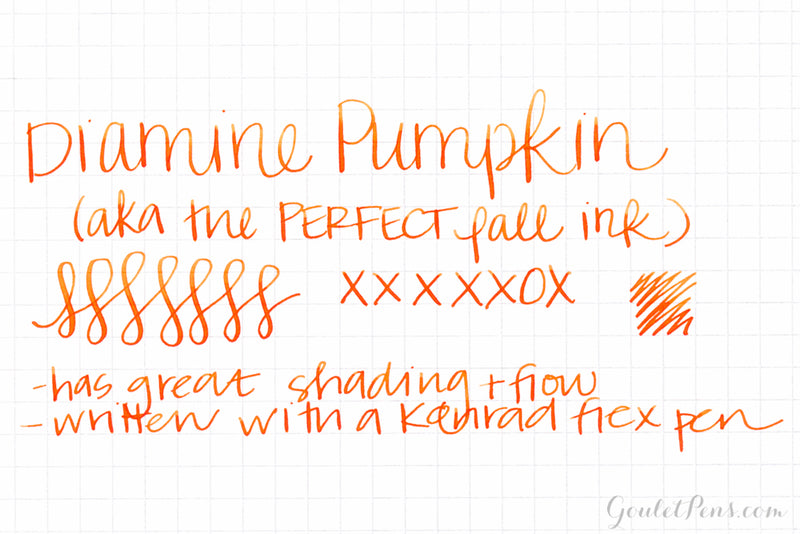 Diamine Pumpkin
(aka the PERFECT fall ink)
xxxxxox
-has great shading + flow
-written with a Konrad flex pen
GouletPens.com